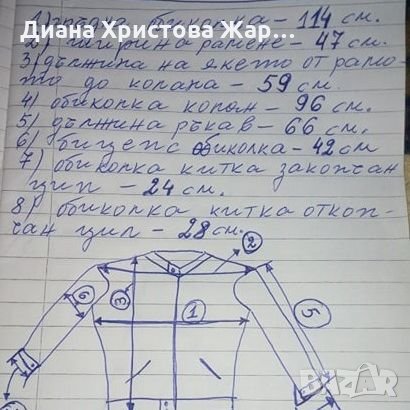 Диана Христова Жар...
1) гръдна обиколка – 114 см.
2) ширина рамене – 47 см.
3) дължина на якето от рамо-
то до колана – 59 см.
4) обиколка колан – 96 см.
5) дължина ръкав – 66 см.
6) бицепс обиколка – 42 см
7) обиколка китка закопчан
цип – 24 см.
8) обиколка китка откоп-
чан цип – 28 см.
2
6
3
1
5
BAZAR